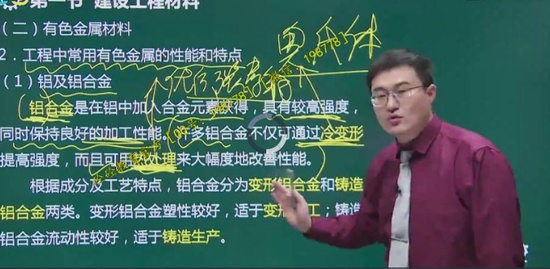 第一节 建设工程材料
（二）有色金属材料
2．工程中常用有色金属的性能和特点
（1）铝及铝合金
铝合金是在铝中加入合金元素获得，具有较高强度，
同时保持良好的加工性能。许多铝合金不仅可通过冷变形
提高强度，而且可用热处理来大幅度地改善性能。
根据成分及工艺特点，铝合金分为变形铝合金和铸造
铝合金两类。变形铝合金塑性较好，适于变形加工；铸造
铝合金流动性较好，适于铸造生产。